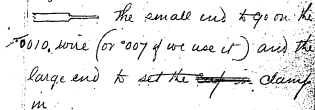 The small end to go on the
.0010. wire (or .007 if we use it) and the
large end to set the clamp
in